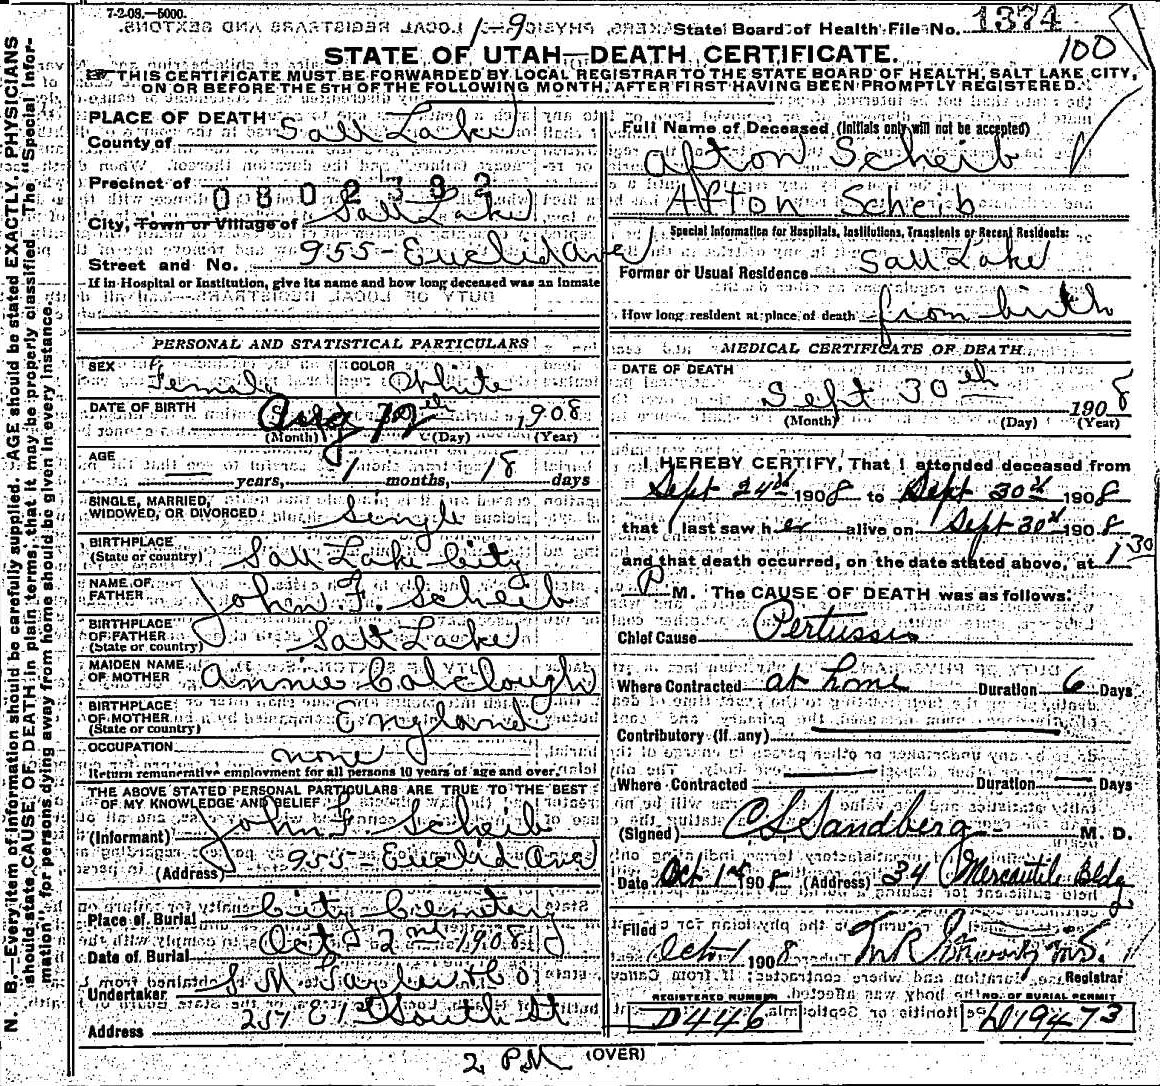 7-2-08.—5000.
1-9
State Board of Health File No. 1374
100
STATE OF UTAH—DEATH CERTIFICATE.
THIS CERTIFICATE MUST BE FORWARDED BY LOCAL REGISTRAR TO THE STATE BOARD OF HEALTH, SALT LAKE CITY,
ON OR BEFORE THE 5TH OF THE FOLLOWING MONTH, AFTER FIRST HAVING BEEN PROMPTLY REGISTERED.
N. B.—Every item of information should be carefully supplied. AGE should be stated EXACTLY. PHYSICIANS
should state CAUSE OF DEATH in plain terms, that it may be properly classified. The "Special Infor-
mation" for persons dying away from home should be given in every instance.
PLACE OF DEATH
County of Salt Lake
Precinct of
0802382
City, Town or Village of Salt Lake
Street and No. 955- Euclid Ave
If in Hospital or Institution, give its name and how long deceased was an inmate
PERSONAL AND STATISTICAL PARTICULARS
SEX Female
COLOR White
DATE OF BIRTH Aug 12th 1908
(Month) (Day) (Year)
AGE — years, 1 months, 18 days
SINGLE, MARRIED,
WIDOWED, OR DIVORCED Single
BIRTHPLACE
(State or country) Salt Lake City
NAME OF
FATHER John F. Scheib
BIRTHPLACE
OF FATHER
(State or country) Salt Lake
MAIDEN NAME
OF MOTHER Annie Colclough
BIRTHPLACE
OF MOTHER
(State or country) England
OCCUPATION none
Return remunerative employment for all persons 10 years of age and over.
THE ABOVE STATED PERSONAL PARTICULARS ARE TRUE TO THE BEST
OF MY KNOWLEDGE AND BELIEF
(Informant) John F. Scheib
(Address) 955- Euclid Ave
Place of Burial City Cemetery
Date of Burial Oct 2nd 1908
Undertaker S. M. Taylor & Co
Address 257 E 1st South St
Full Name of Deceased (Initials only will not be accepted)
Afton Scheib
Afton Scheib
Special Information for Hospitals, Institutions, Transients or Recent Residents:
Former or Usual Residence Salt Lake
How long resident at place of death from birth
MEDICAL CERTIFICATE OF DEATH
DATE OF DEATH
Sept 30th 1908
(Month) (Day) (Year)
I HEREBY CERTIFY, That I attended deceased from
Sept 24th 1908 to Sept 30th 1908
that I last saw her alive on Sept 30th 1908
and that death occurred, on the date stated above, at 1 30
P M. The CAUSE OF DEATH was as follows:
Chief Cause Pertussis
Where Contracted at home Duration 6 Days
Contributory (if any)
Where Contracted — Duration — Days
(Signed) C L Sandberg M. D.
Date Oct 1st 1908 (Address) 34 Mercantile Bldg
Filed Oct 1 1908
Registrar
REGISTERED NUMBER
D446
NO. OF BURIAL PERMIT
D19473
(OVER)
2 PM